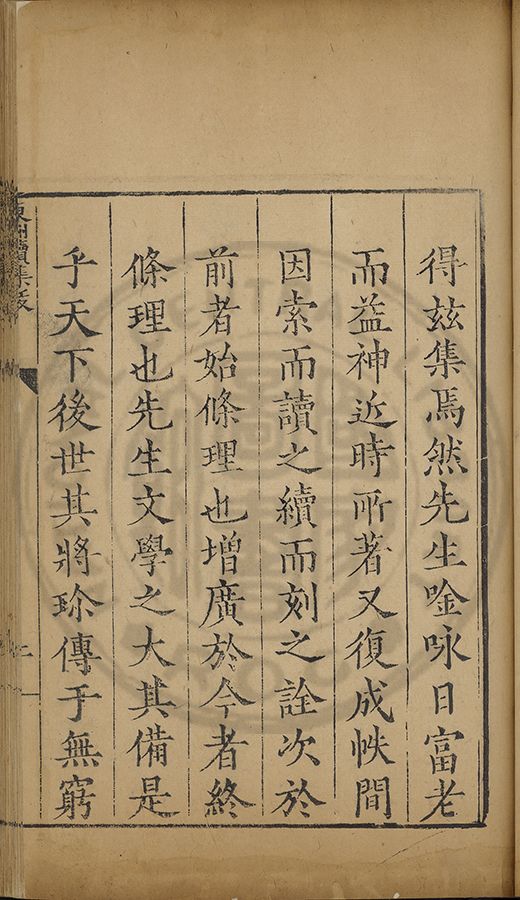 得兹集焉然先生唫咏日富老
而益神近時所著又復成帙間
因索而讀之續而刻之詮次於
前者始條理也增廣於今者終
條理也先生文學之大其備是
乎天下後世其將珎傳于無窮
續集